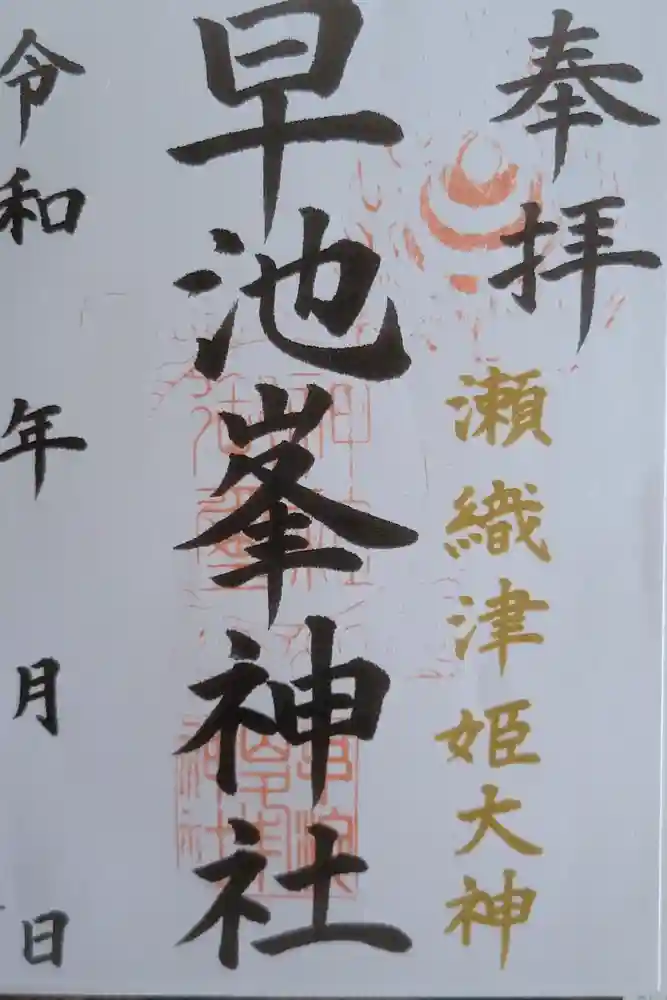 奉拝
瀬織津姫大神
早池峯神社
令和 年 月 日